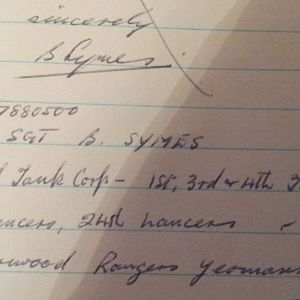 sincerely
B Symes.
7880500
SGT B. SYMES
Tank Corp - 1st, 3rd & 4th
ncers, 24th Lancers -
rwood Rangers Yeoman